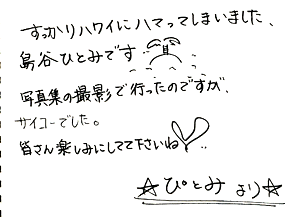 すっかりハワイにハマってしまいました、
島谷ひとみです
写真集の撮影で行ったのですが、
サイコーでした。
皆さん楽しみにしてて下さいね
☆ぴとみより☆